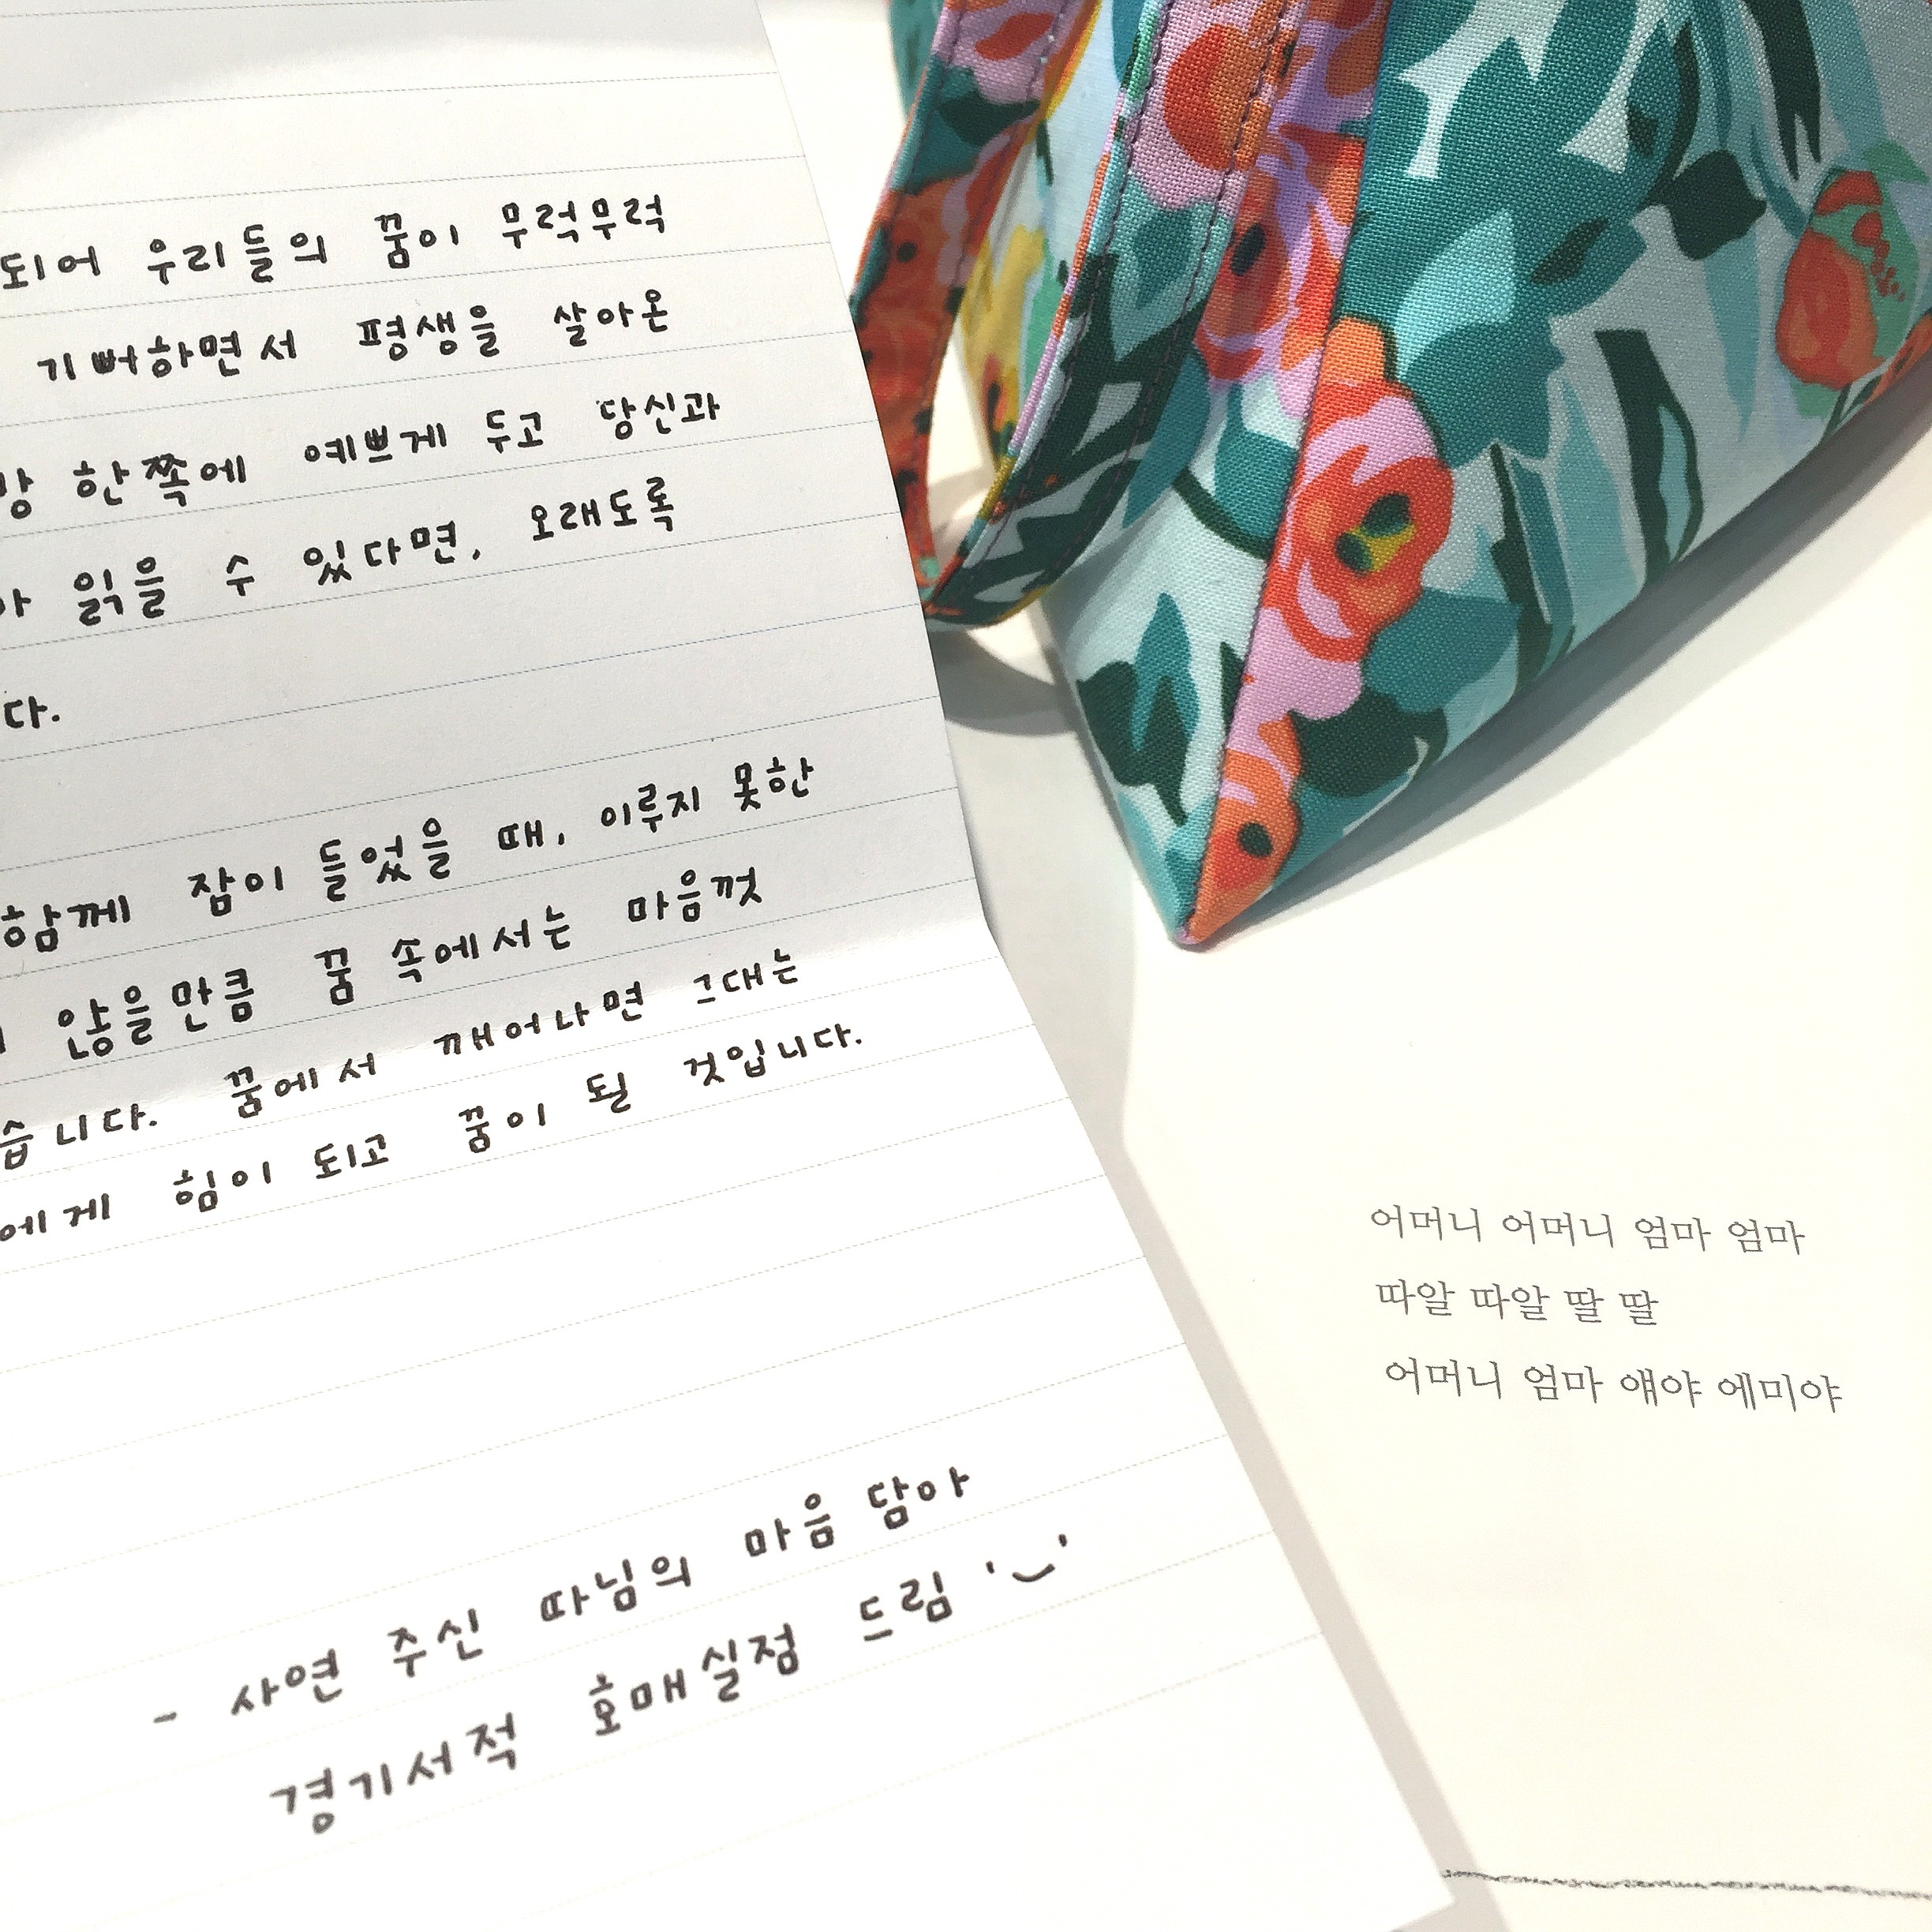 되어 우리들의 꿈이 무럭무럭
기뻐하면서 평생을 살아온
한쪽에 예쁘게 두고 당신과
읽을 수 있다면, 오래도록
다.
함께 잠이 들었을 때, 이루지 못한
않을만큼 꿈 속에서는 마음껏
습니다. 꿈에서 깨어나면 그대는
에게 힘이 되고 꿈이 될 것입니다.
- 사연 주신 따님의 마음 담아
경기서적 호매실점 드림
어머니 어머니 엄마 엄마
따알 따알 딸 딸
어머니 엄마 얘야 에미야